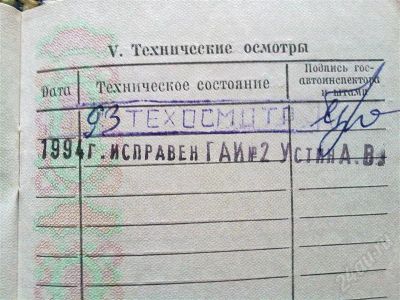 V. Технические осмотры
Дата Техническое состояние Подпись гос-
автоинспектора
и штамп
93 ТЕХОСМОТР
1994г. ИСПРАВЕН ГАИ№2 УСТИНА.В.
24au.ru